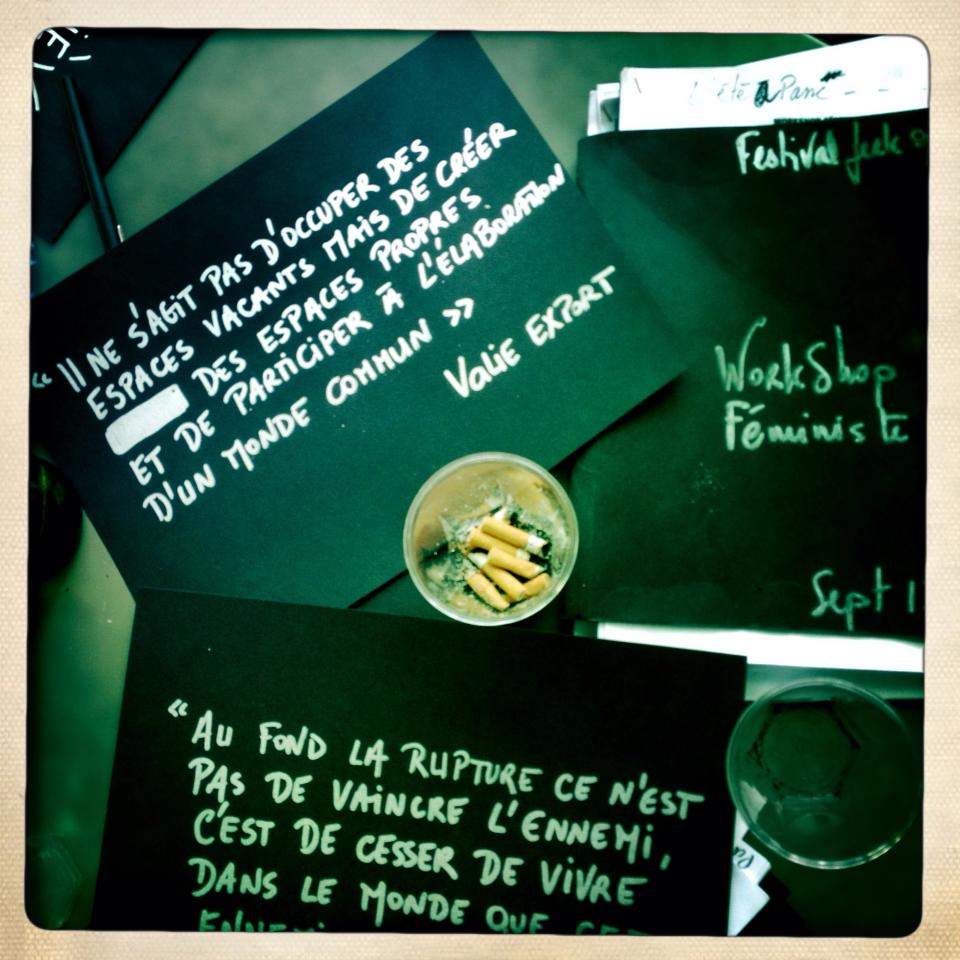 « Il NE S'AGIT PAS D'OCCUPER DES
ESPACES VACANTS MAIS DE CRÉER
DES ESPACES PROPRES
ET DE PARTICIPER À L'ÉLABORATION
D'UN MONDE COMMUN »
VALIE EXPORT
L'été à
Festival
WorkShop
Féministe
Sept 1
« AU FOND LA RUPTURE CE N'EST
PAS DE VAINCRE L'ENNEMI,
C'EST DE CESSER DE VIVRE
DANS LE MONDE QUE CET
ENNEMI